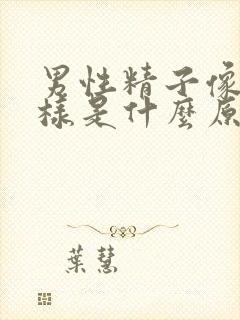 男性精子像
樣是什麼原
葉慧